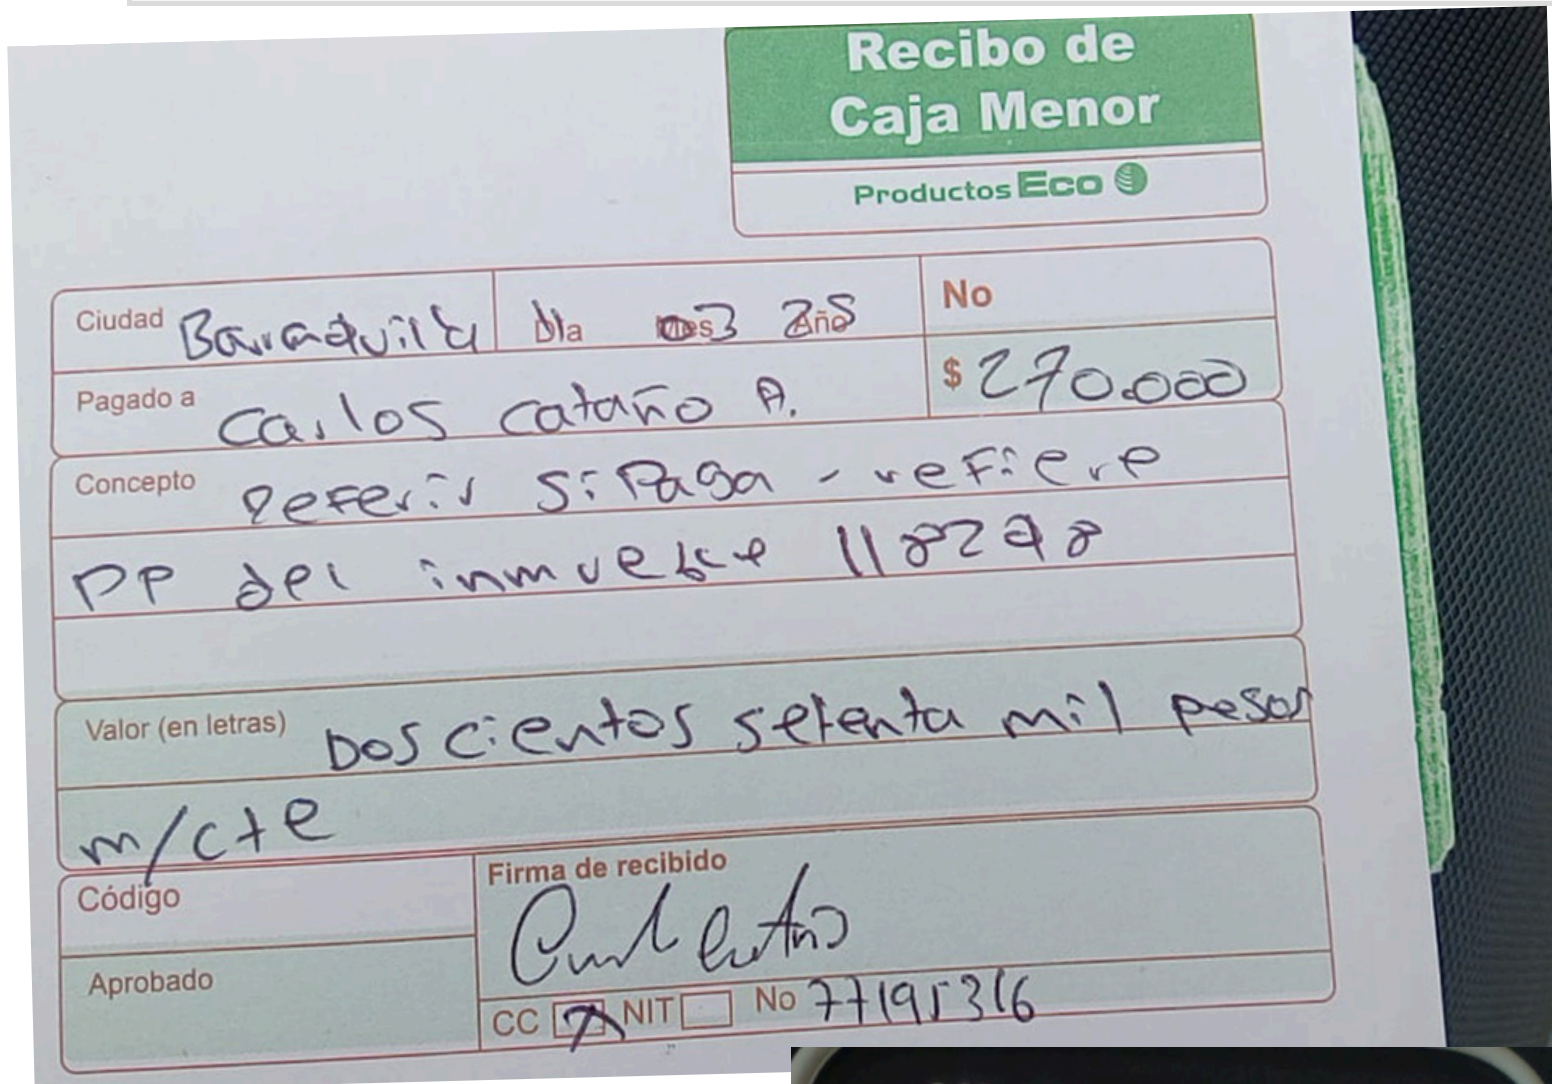 Recibo de
Caja Menor
Productos Eco
Ciudad Baraquilla Día 11 Mes 03 Año 25 No
Pagado a Carlos Cataño A. $ 270.000
Concepto Referir si Paga - refiere
PP del inmueble
Valor (en letras) Dos cientos setenta mil pesos
m/cte
Código
Firma de recibido
Aprobado
CC NIT No 77195316